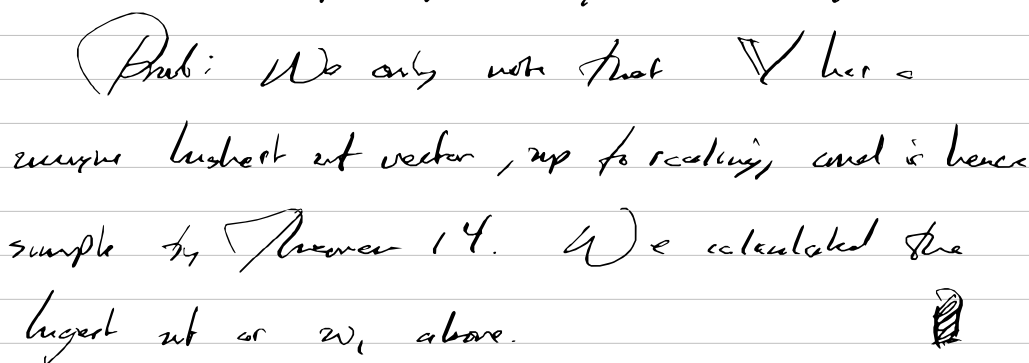 Proof: We only note that 𝕍 has a
unique highest wt vector, up to scaling, and is hence
simple by Theorem 14. We calculated the
highest wt as ω₁ above.